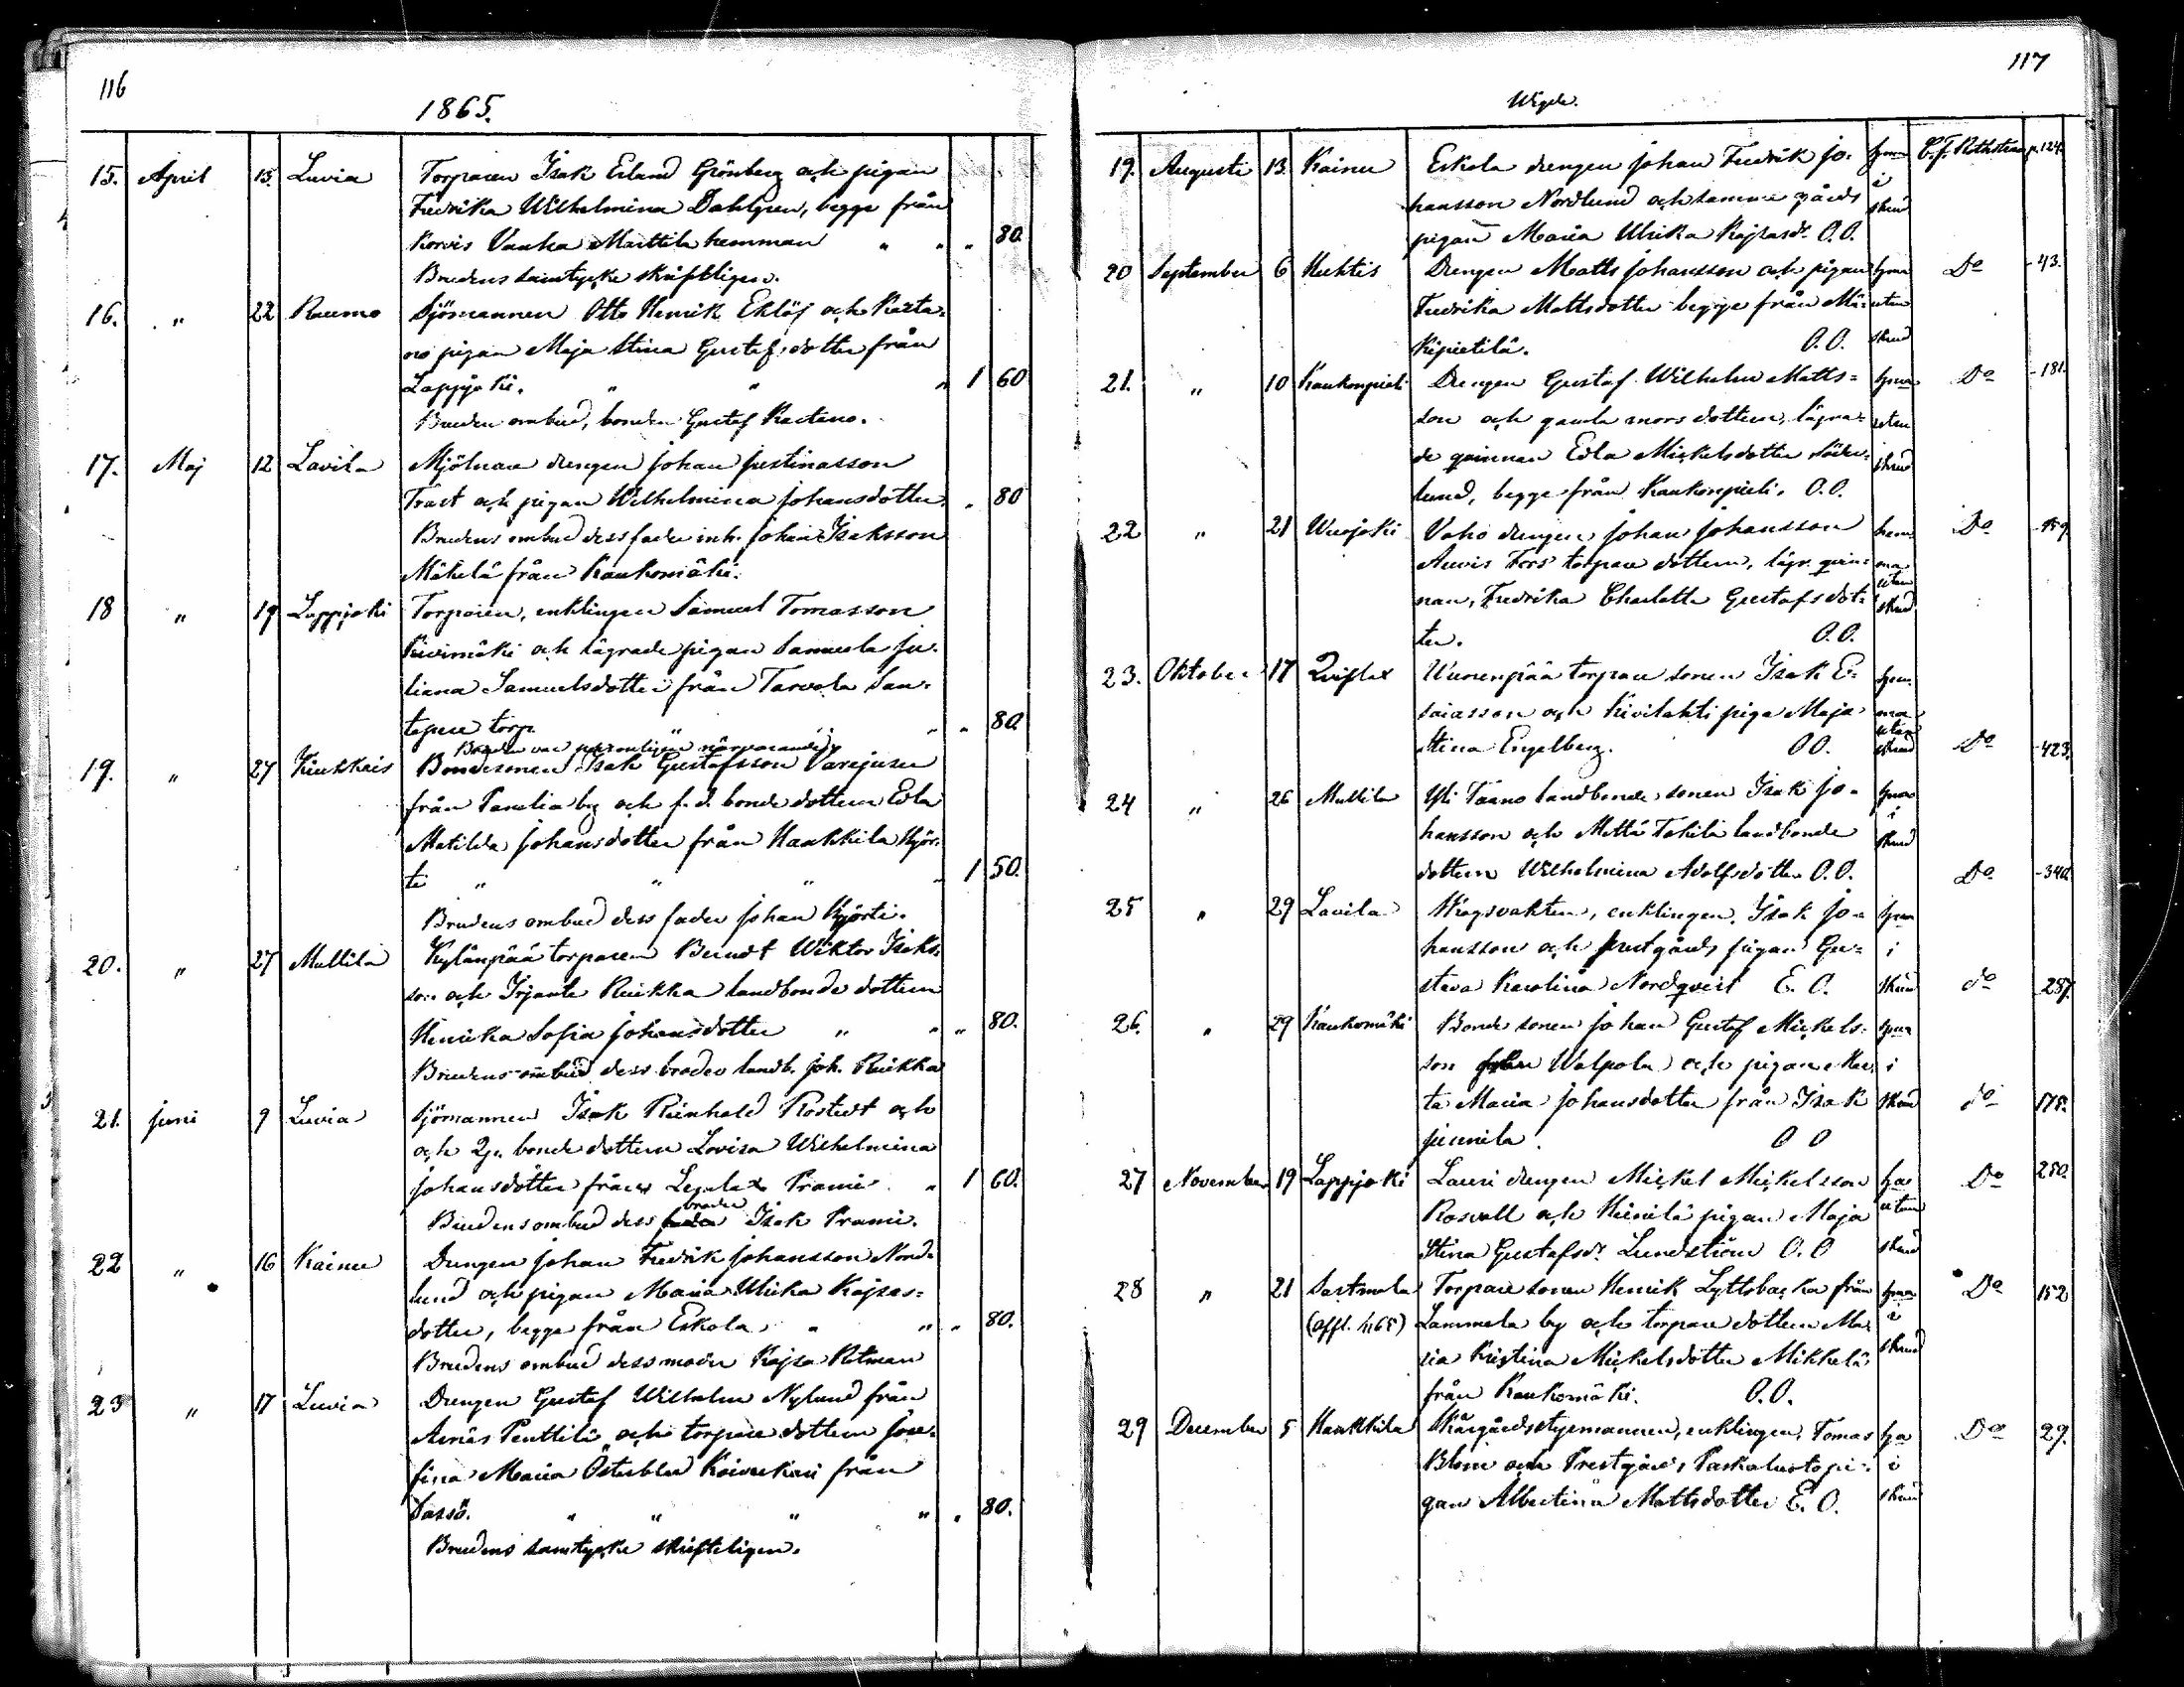 116
1865.
15. April 15. Luvia Torparen Isak Erland Grönberg och pigan
Fredrika Wilhelmina Dahlgren, begge från
Korvis Vanha Marttila hemman " " " 80.
Brudens samtycke skriftligen.
16. " 22 Raumo Sjömannen Otto Henrik Eklöf och Kasta-
no pigan Maja Stina Gustafsdotter från
Lappjoki. " " " 1 60
Bruden ombud, bonden Gustaf
17. Maj 12 Lavila Mjölnare drengen Johan Justinasson
Trast och pigan Wilhelmina Johansdotter. " 80
Brudens ombud dess fader inh. Johan Isaksson
Mäkelä från Kaukomäki.
18 " 19 Lappjoki Torparen, enklingen Samuel Tomasson
Kivimäki och lägrade pigan Sannela Ju-
liana Samuelsdotter från Tarvola San-
tapere torp " " " " 80.
Bruden var personligen närvarande
19. " 27 Kuukkais Bondesonen Isak Gustafsson Varejusen
från Panelia by och f. d. bonde dottern Edla
Matilda Johansdotter från Hankkila Kjör-
ti " " " " 1 50.
Brudens ombud dess fader Johan Kjörti.
20. " 27 Mullila Kylänpää torparen Berndt Wiktor Isaks-
son och Irjante Ruikka landbonde dottern
Henrika Sofia Johansdotter " " " 80.
Brudens ombud dess broder landb. Joh. Ruikka
21. Juni 9 Luvia Sjömannen Isak Reinhold Rostedt och
och bonde dottern Lovisa Wilhelmina
Johansdotter från Lemlax Prami " 1 60.
broder
Brudens ombud dess fader Isak Prami.
22 " 16 Kainu Drengen Johan Fredrik Johansson Nord-
lund och pigan Maria Ulrika Kajsas-
dotter, begge från Eskola " " " 80.
Brudens ombud dess moder Kajsa Rotman
23 " 17 Luvia Drengen Gustaf Wilhelm Nylund från
Arnäs Penttilä och torpare dottern Jose-
fina Maria Österblad Koivukari från
Sassö. " " " " " 80.
Brudens samtycke skriftligen.
117
Wigde.
19. Augusti 13. Kainu Eskola drengen Johan Fredrik Jo- hema C. J. Rothsten p. 124.
hansson Nordlund och samma gårds i skrud
pigan Maria Ulrika Kajsasdr. O.O.
20 September 6 Huhtis Drengen Matts Johansson och pigan hema Do -43.
Fredrika Mattsdotter begge från Mä- utan
kipietilä. O.O. skrud
21. " 10 Kaukonpieli Drengen Gustaf Wilhelm Matts- hema Do -181.
son och gamla mors dottern, lägra- utan
de qvinnan Edla Mickelsdotter Söder- skrud
lund, begge från Kaukonpieli. O.O.
22 " 21 Wuojoki Vaho drengen Johan Johansson hem Do -159.
Auvis Fors torpare dottern, lägr. qvin- ma
nan, Fredrika Charlotta Gustafsdot- utan skrud
ter. O.O.
23. Oktober 17 Quiflax Uunenpää torpare sonen Isak E- hem
saiasson och Kivilahti piga Maja ma utan
Stina Engelberg. O O. skrud Do -423.
24 " 26 Mullila Yli Taano landbonde sonen Isak Jo- hema
hansson och Mattä Tokila landbonde i skrud
dottern Wilhelmina Adolfsdotter O.O. Do -340.
25 " 29 Lavila Skogsvakten, enklingen Isak Jo- hema
hansson och prestgårds pigan Gu- i
stava Karolina Nordqvist E. O. skrud do 287.
26. " 29 Kaukomäki Bonde sonen Johan Gustaf Mickels- hema
son Walpola och pigan i
ta Maria Johansdotter från Isak skrud do 178.
Junnila. O O
27 November 19 Lappjoki Lauri drengen Mickel Mickelsson hema Do 250.
Rosvall och Heinilä pigan Maja utan
Stina Gustafsdr. Lundström O.O skrud
28 " 21 Sastmola Torpare sonen Henrik Lyttbacka från hema Do 152
(affl. 4/65) Lammela by och torpare dottern Ma- i
ria Kristina Mickelsdotter Mikkelä skrud
från Kaukomäki. O.O.
29 December 5 Hankkila Skärgårdsstyrmannen, enklingen, Tomas hema Do 29.
Blom och Prestgårds Paskaluoto pi- i
gan Albertina Mattsdotter E. O. skrud